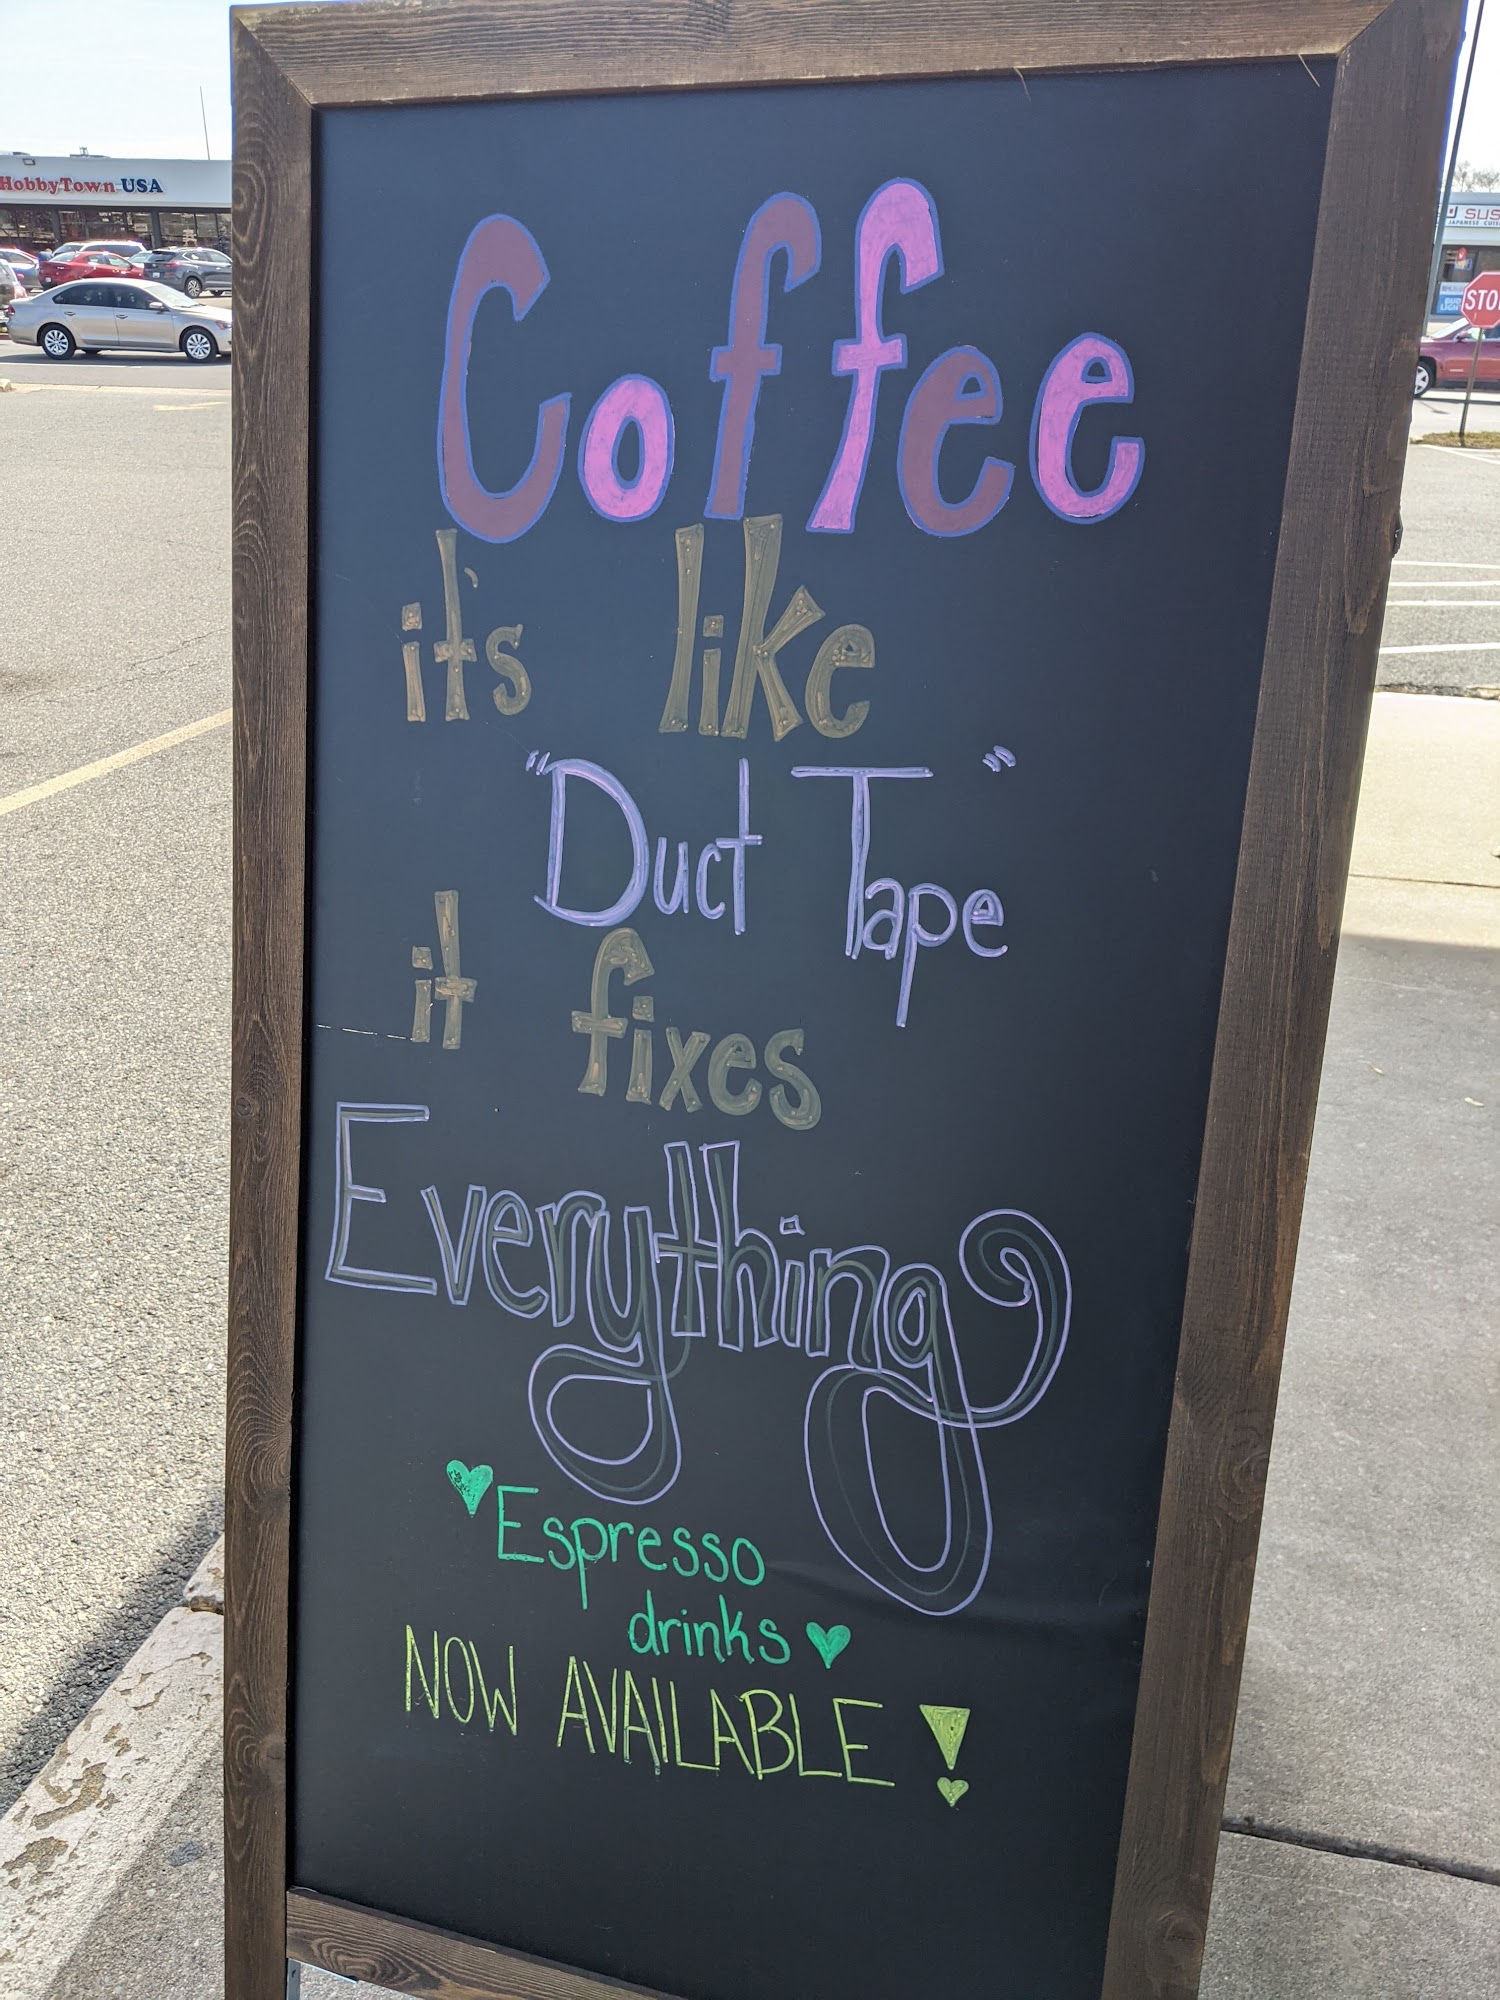 HobbyTown USA
JAPANESE
STO
Coffee
it's like
"Duct Tape"
it fixes
Everything
Espresso
drinks
NOW AVAILABLE!